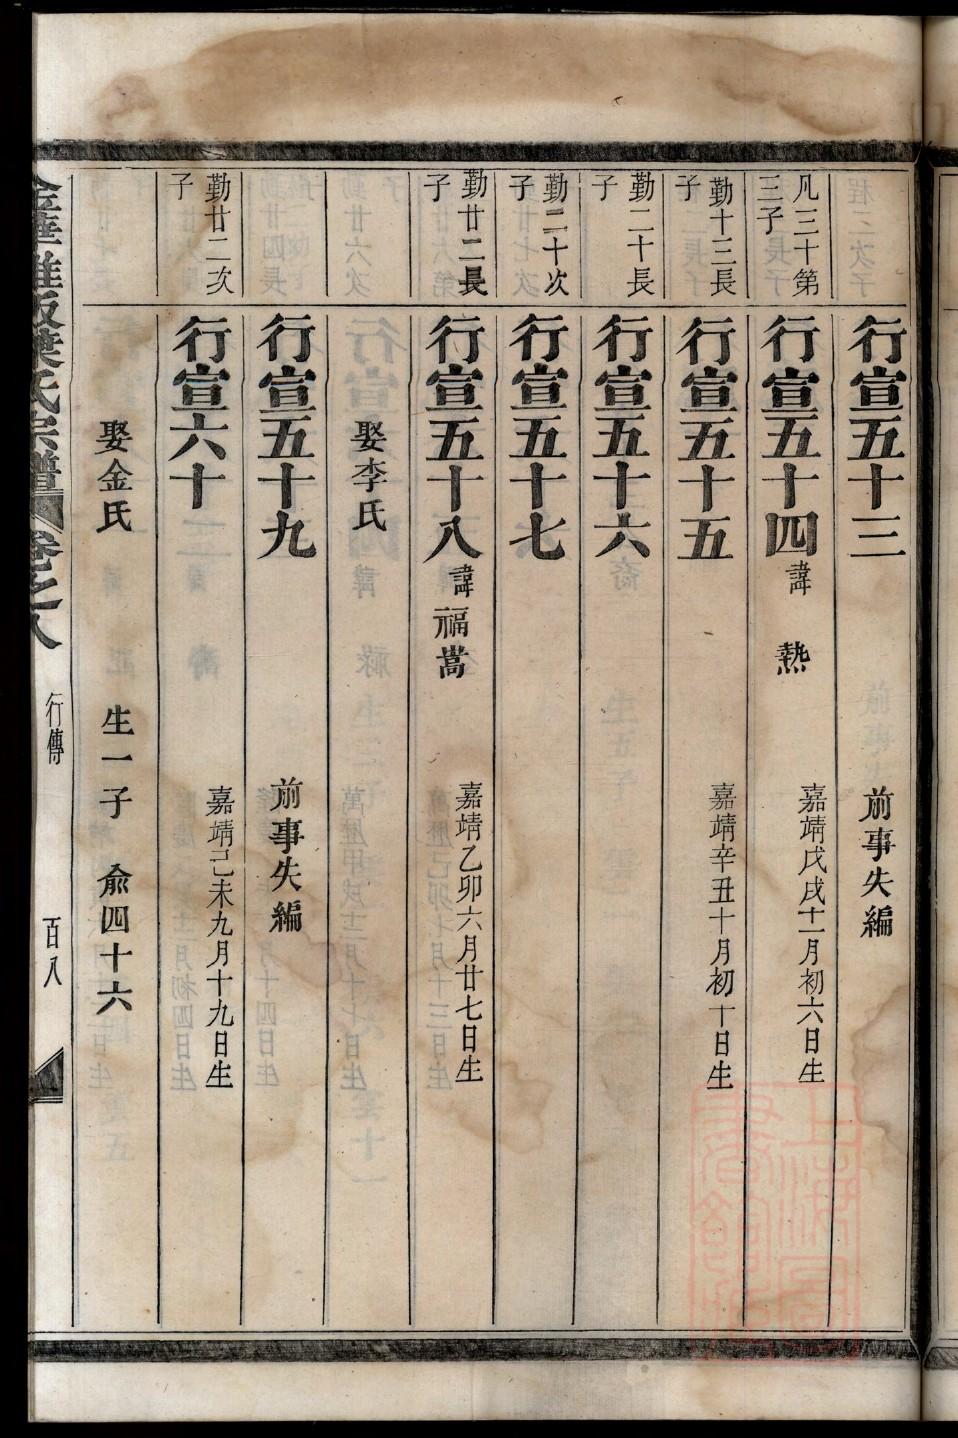 行宣五十三 前事失編
凡三十第三子 行宣五十四 諱 熱 嘉靖戊戌十一月初六日生
勤十三長子 行宣五十五 嘉靖辛丑十月初十日生
勤二十長子 行宣五十六
勤二十次子 行宣五十七
勤廿二長子 行宣五十八 諱福嵩 嘉靖乙卯六月廿七日生
娶李氏
行宣五十九 前事失編
勤廿二次子 行宣六十 嘉靖己未九月十九日生
娶金氏 生一子 俞四十六
氏宗譜 卷之八 行傳 百八